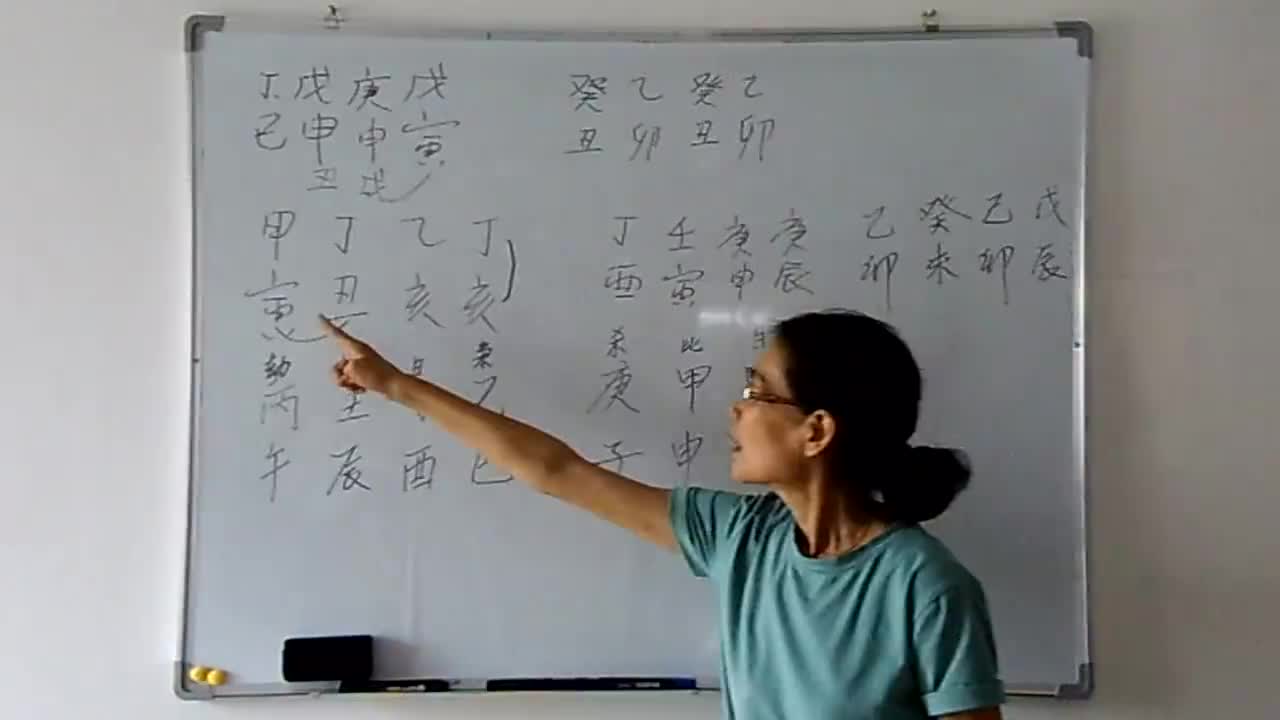 丁 戊 庚 戊 癸 乙 癸 乙
巳 申 申 寅 丑 卯 丑 卯
丑 戌
甲 丁 乙 丁 丁 壬 庚 庚 乙 癸 己 戊
寅 丑 亥 亥 酉 寅 申 辰 卯 未 卯 辰
劫 杀 比
丙 壬 乙 庚 甲
午 辰 酉 巳 子 申